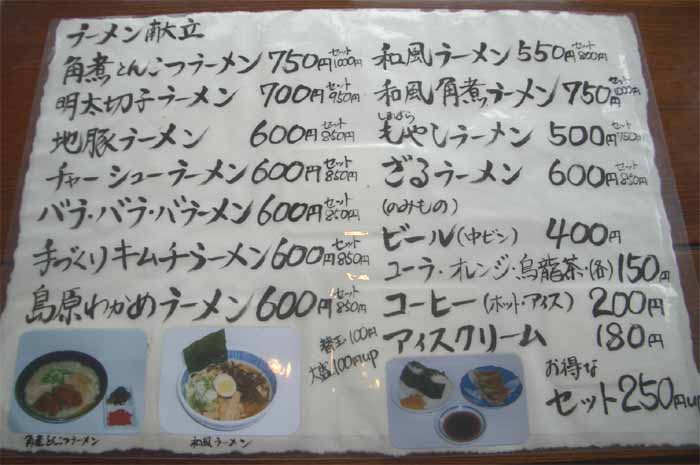 ラーメン献立
角煮とんこつラーメン 750円 セット1000円
明太切子ラーメン 700円 セット950円
地豚ラーメン 600円 セット850円
チャーシューラーメン 600円 セット850円
バラ・バラ・バラーメン 600円 セット850円
手づくりキムチラーメン 600円 セット850円
島原わかめラーメン 600円 セット850円
替玉100円
大盛100円up
角煮とんこつラーメン
和風ラーメン
和風ラーメン 550円 セット800円
和風角煮ラーメン 750円 セット1000円
しまばら
もやしラーメン 500円 セット750円
ざるラーメン 600円 セット850円
(のみもの)
ビール(中ビン) 400円
コーラ・オレンジ・烏龍茶・(各)150円
コーヒー(ホット・アイス) 200円
アイスクリーム 180円
お得な
セット250円up